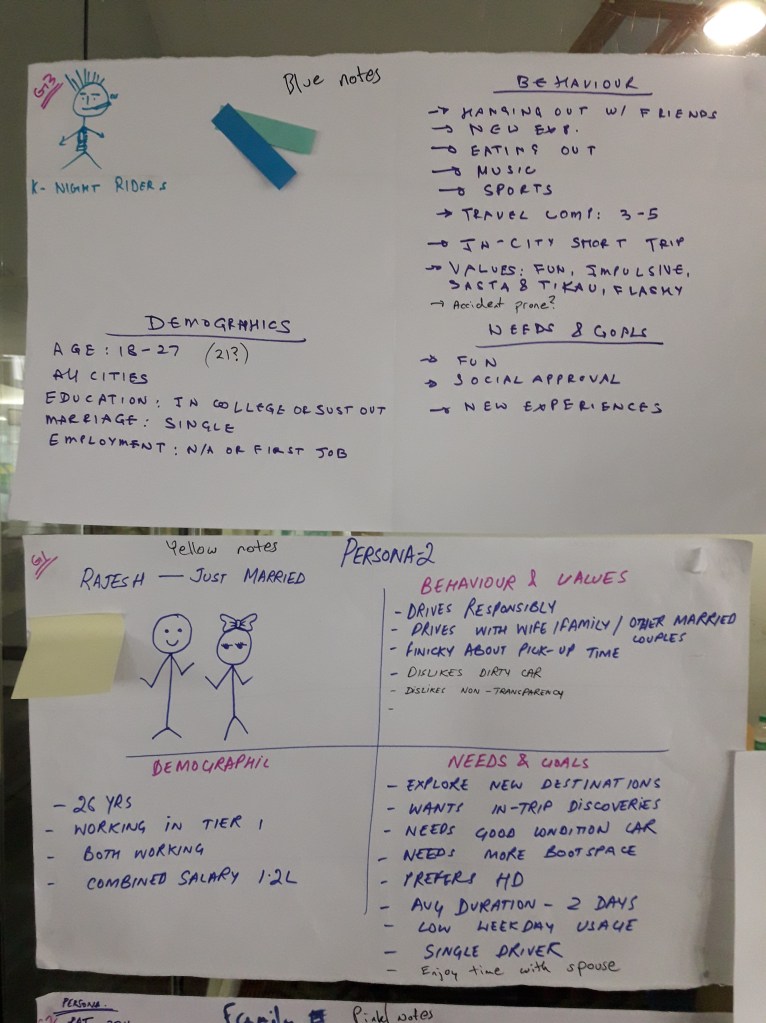 G3
Blue notes
K-NIGHT RIDERS
BEHAVIOUR
→ HANGING OUT W/ FRIENDS
→ NEW EXP.
→ EATING OUT
→ MUSIC
→ SPORTS
→ TRAVEL COMP: 3-5
→ IN-CITY SHORT TRIP
→ VALUES: FUN, IMPULSIVE,
SASTA & TIKAU, FLASHY
→ Accident prone?
DEMOGRAPHICS
AGE: 18-27 (21?)
All CITIES
EDUCATION: IN COLLEGE OR JUST OUT
MARRIAGE: SINGLE
EMPLOYMENT: N/A OR FIRST JOB
NEEDS & GOALS
→ FUN
→ SOCIAL APPROVAL
→ NEW EXPERIENCES
G1
Yellow notes
PERSONA-2
RAJESH — JUST MARRIED
BEHAVIOUR & VALUES
- DRIVES RESPONSIBLY
- DRIVES WITH WIFE/FAMILY/OTHER MARRIED
COUPLES
- FINICKY ABOUT PICK-UP TIME
- DISLIKES DIRTY CAR
- DISLIKES NON-TRANSPARENCY
-
DEMOGRAPHIC
- 26 YRS
- WORKING IN TIER 1
- BOTH WORKING
- COMBINED SALARY 1.2L
NEEDS & GOALS
- EXPLORE NEW DESTINATIONS
- WANTS IN-TRIP DISCOVERIES
- NEEDS GOOD CONDITION CAR
- NEEDS MORE BOOTSPACE
- PREFERS HD
- AVG DURATION - 2 DAYS
- LOW WEEKDAY USAGE
- SINGLE DRIVER
- Enjoy time with spouse
PERSONA.
Family
Pink notes